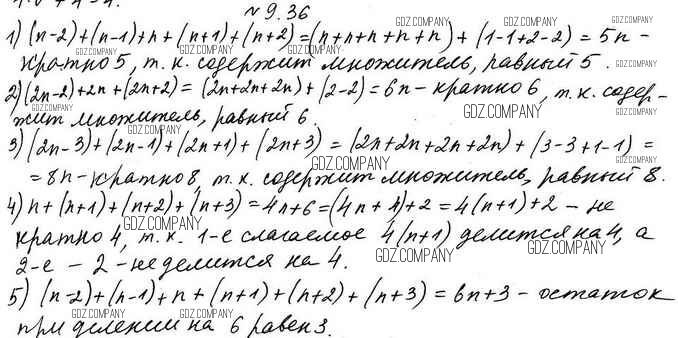 № 9.36
1) (n-2)+(n-1)+n+(n+1)+(n+2)=(n+n+n+n+n)+(1-1+2-2)=5n-
кратно 5, т.к. содержит множитель, равный 5.
2) (2n-2)+2n+(2n+2)=(2n+2n+2n)+(2-2)=6n-кратно 6, т.к. содер-
жит множитель, равный 6.
3) (2n-3)+(2n-1)+(2n+1)+(2n+3)=(2n+2n+2n+2n)+(3-3+1-1)=
=8n-кратно 8, т.к. содержит множитель, равный 8.
4) n+(n+1)+(n+2)+(n+3)=4n+6=(4n+4)+2=4(n+1)+2-не
кратно 4, т.к. 1-е слагаемое 4(n+1) делится на 4, а
2-е - 2-не делится на 4.
5) (n-2)+(n-1)+n+(n+1)+(n+2)+(n+3)=6n+3-остаток
при делении на 6 равен 3.
GDZ.COMPANY